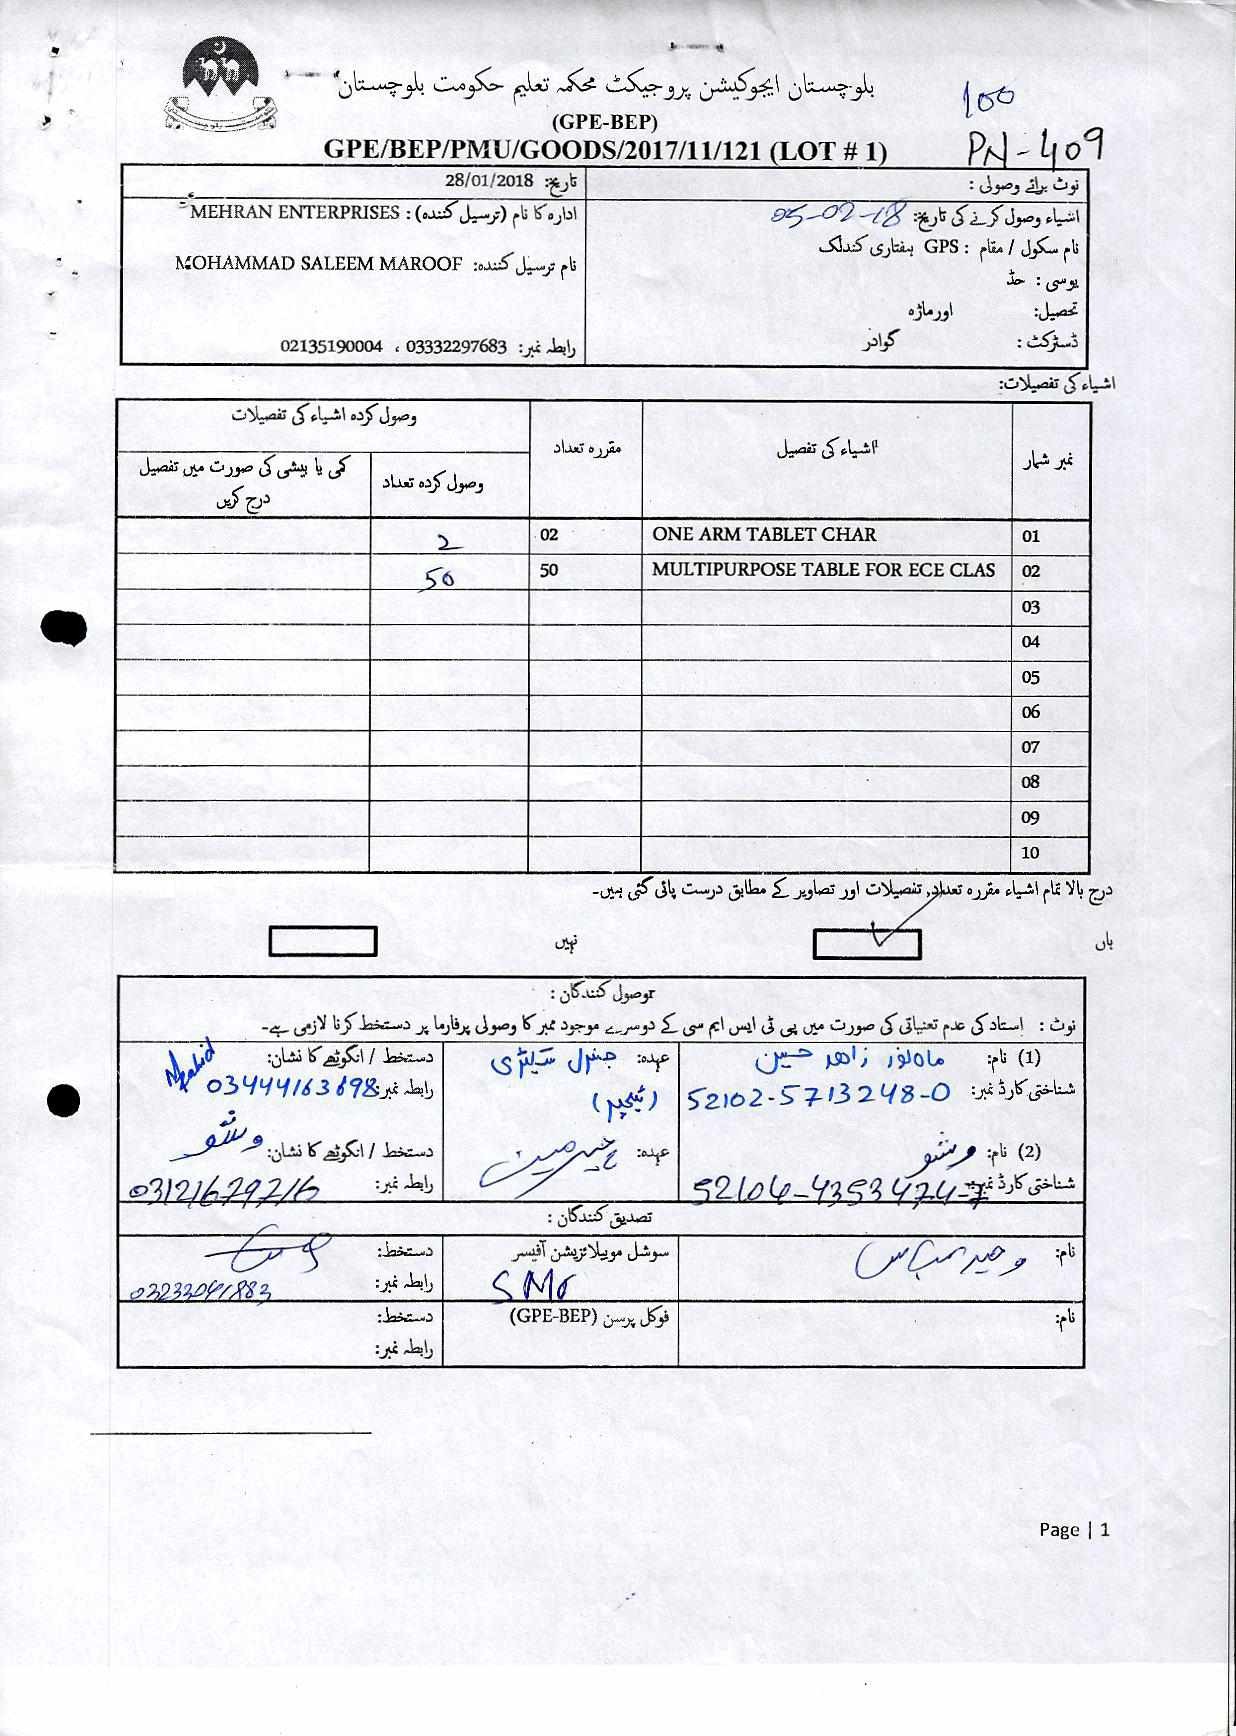 بلوچستان ایجوکیشن پروجیکٹ محکمہ تعلیم حکومت بلوچستان
100
(GPE-BEP)
GPE/BEP/PMU/GOODS/2017/11/121 (LOT # 1)
PN-409
نوٹ برائے وصولی :
تاریخ: 28/01/2018
اشیاء وصول کرنے کی تاریخ: 05-02-18
نام سکول / مقام : GPS ہفتاری کنڈلک
یوسی : حڈ
تحصیل: اورماڑہ
ڈسٹرکٹ : گوادر
ادارہ کا نام (ترسیل کنندہ) : MEHRAN ENTERPRISES
نام ترسیل کنندہ: MOHAMMAD SALEEM MAROOF
رابطہ نمبر: 03332297683 ، 02135190004
اشیاء کی تفصیلات:
نمبر شمار اشیاء کی تفصیل مقررہ تعداد وصول کردہ اشیاء کی تفصیلات
وصول کردہ تعداد کمی یا بیشی کی صورت میں تفصیل درج کریں
01 ONE ARM TABLET CHAR 02 2
02 MULTIPURPOSE TABLE FOR ECE CLAS 50 50
03
04
05
06
07
08
09
10
درج بالا تمام اشیاء مقررہ تعداد, تفصیلات اور تصاویر کے مطابق درست پائی گئی ہیں۔
ہاں نہیں
وصول کنندگان :
نوٹ : استاد کی عدم تعنیاتی کی صورت میں پی ٹی ایس ایم سی کے دوسرے موجود ممبر کا وصولی پرفارما پر دستخط کرنا لازمی ہے۔
(1) نام: زاھد حسین
شناختی کارڈ نمبر: 52102-5713248-0
عہدہ: جنرل سیکٹری
(ٹیچر)
دستخط / انگوٹھے کا نشان: Zahid
رابطہ نمبر: 03444163698
(2) نام: وشو
شناختی کارڈ نمبر: 52104-4353474-7
عہدہ: چیرمین
دستخط / انگوٹھے کا نشان: وشو
رابطہ نمبر: 03121679716
تصدیق کنندگان :
نام:
سوشل موبیلائزیشن آفیسر
SMO
دستخط:
رابطہ نمبر: 03233041883
نام:
فوکل پرسن (GPE-BEP)
دستخط:
رابطہ نمبر:
Page | 1